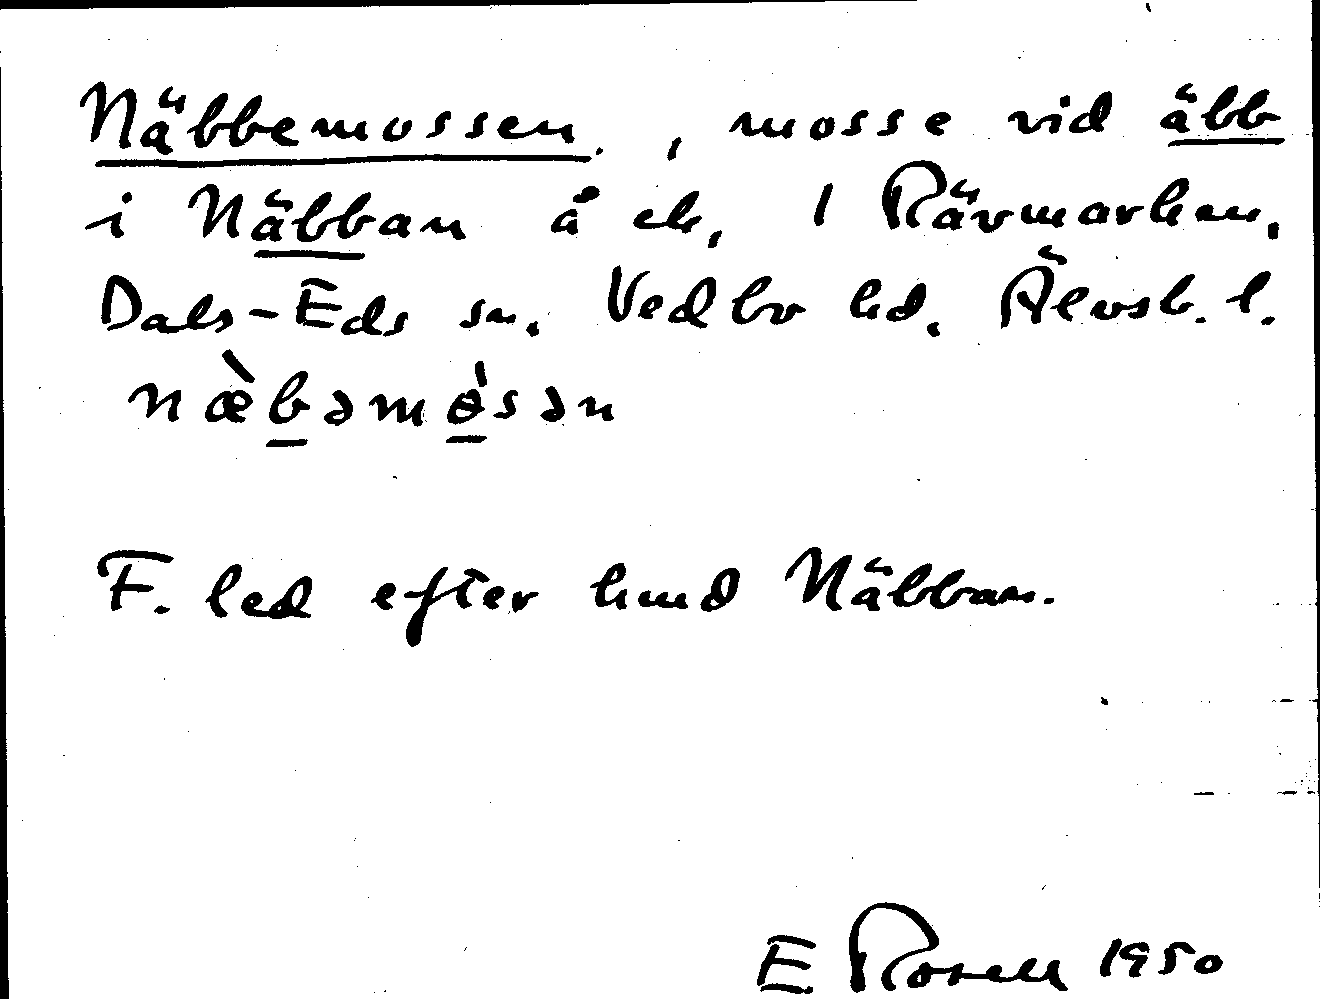 Näbbemossen, mosse vid äbb
i Näbban å ek, 1 Rävmarken,
Dals-Eds sn. Vedbo hd. Älvsb. l.
næ̀bəmɵ̀sən
F. led efter hund Näbban.
E Rosell 1950